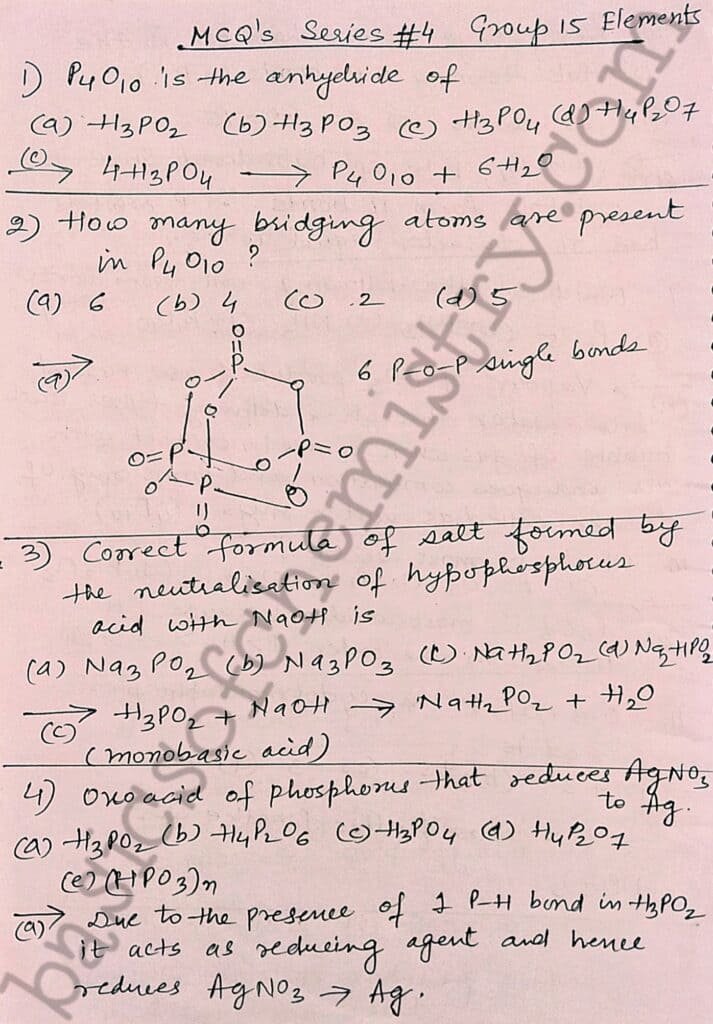 MCQ's Series #4 Group 15 Elements
1) P4O10 is the anhydride of
(a) H3PO2 (b) H3PO3 (c) H3PO4 (d) H4P2O7
(c) → 4H3PO4 → P4O10 + 6H2O
2) How many bridging atoms are present
in P4O10 ?
(a) 6 (b) 4 (c) 2 (d) 5
(a) → 6 P-O-P single bonds
O
P
O O
O
O=P O P=O
O P O
O
3) Correct formula of salt formed by
the neutralisation of hypophosphorus
acid with NaOH is
(a) Na3PO2 (b) Na3PO3 (c) NaH2PO2 (d) Na2HPO2
(c) → H3PO2 + NaOH → NaH2PO2 + H2O
(monobasic acid)
4) Oxoacid of phosphorus that reduces AgNO3
to Ag.
(a) H3PO2 (b) H4P2O6 (c) H3PO4 (d) H4P2O7
(e) (HPO3)n
(a) → Due to the presence of 1 P-H bond in H3PO2
it acts as reducing agent and hence
reduces AgNO3 → Ag.
basicsofchemistry.com